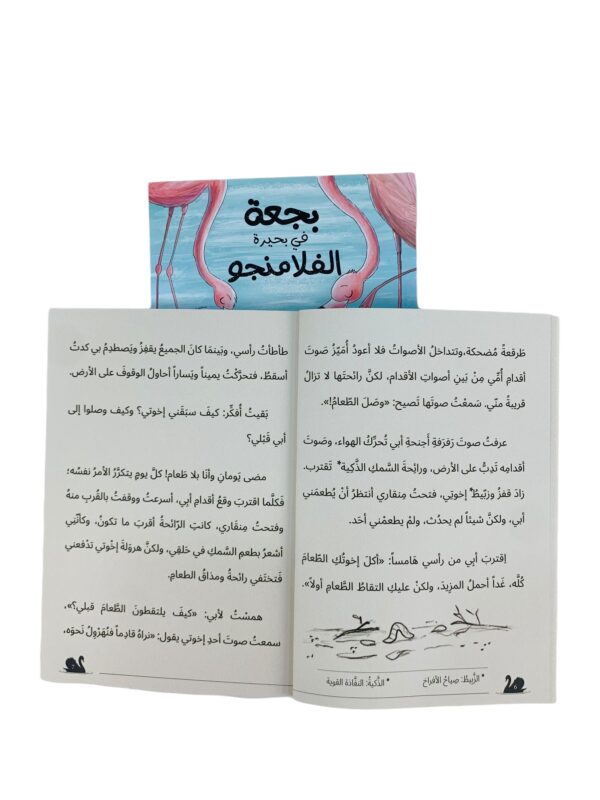 بجعة
في بحيرة
الفلامنجو
طَرقعةً مُضحكة، وتتداخلُ الأصواتُ فلا أعودُ أُمَيِّزُ صَوتَ
أقدامِ أُمِّي مِنْ بَينِ أصواتِ الأقدام، لكنَّ رائحتَها لا تزالُ
قريبةً منّي. سَمعْتُ صوتَها تَصيح: «وصَلَ الطَّعامُ!».
عرفتُ صوتَ رَفرَفةِ أجنحةِ أبي تُحرِّكُ الهواء، وصَوتَ
أقدامِه تَدِبُّ على الأرض، ورائِحةَ السَّمكِ الذَّكِية* تَقتَرب.
زادَ قفزُ وزَبِيطُ* إخوَتِي، فتحتُ مِنقاري أنتظرُ أنْ يُطعمَني
أبي، ولكنَّ شيئاً لم يحدُث، ولمْ يطعمْني أحَد.
اِقتربَ أبِي من رأسي هَامساً: «أكلَ إخوتُكِ الطَّعامَ
كُلَّه، غَداً أحملُ المزيدَ، ولكنْ عليكِ التقاطُ الطَّعامِ أولاً».
* الزَّبيطُ: صِياحُ الأفراخ
* الذَّكيةُ: النفَّاذة القوية
6
طأطأتُ رأسي، وبَينمَا كانَ الجميعُ يقفِزُ ويَصطدِمُ بي كدتُ
أسقطُ، فتحرَّكْتُ يميناً ويَساراً أحاولُ الوقوفَ على الأرض.
بَقيتُ أُفكِّر: كيفَ سبَقَني إخوتي؟ وكيف وصلوا إلى
أبي قَبْلي؟
مضى يَومانِ وأنَا بلا طَعام! كلَّ يومٍ يتكرَّرُ الأمرُ نفسُه؛
فَكلَّما اقتربَ وقعُ أقدامِ أبي، أسرعتُ ووقفتُ بالقُربِ منهُ
وفتحتُ مِنقَاري، كانتِ الرَّائحةُ أقربَ ما تكونُ، وكأنَّنِي
أشعرُ بطعمِ السَّمكِ في حَلقِي، ولكنَّ هروَلةَ إخْوتي تدْفعني
فَتختَفي رائحةُ ومذاقُ الطعام.
همسْتُ لأبي: «كيفَ يلتقطونَ الطَّعامَ قبلي؟»،
سمعتُ صوتَ أحدِ إخوتي يقول: «نراهُ قادِماً فنُهَرْوِلُ نَحوَه،